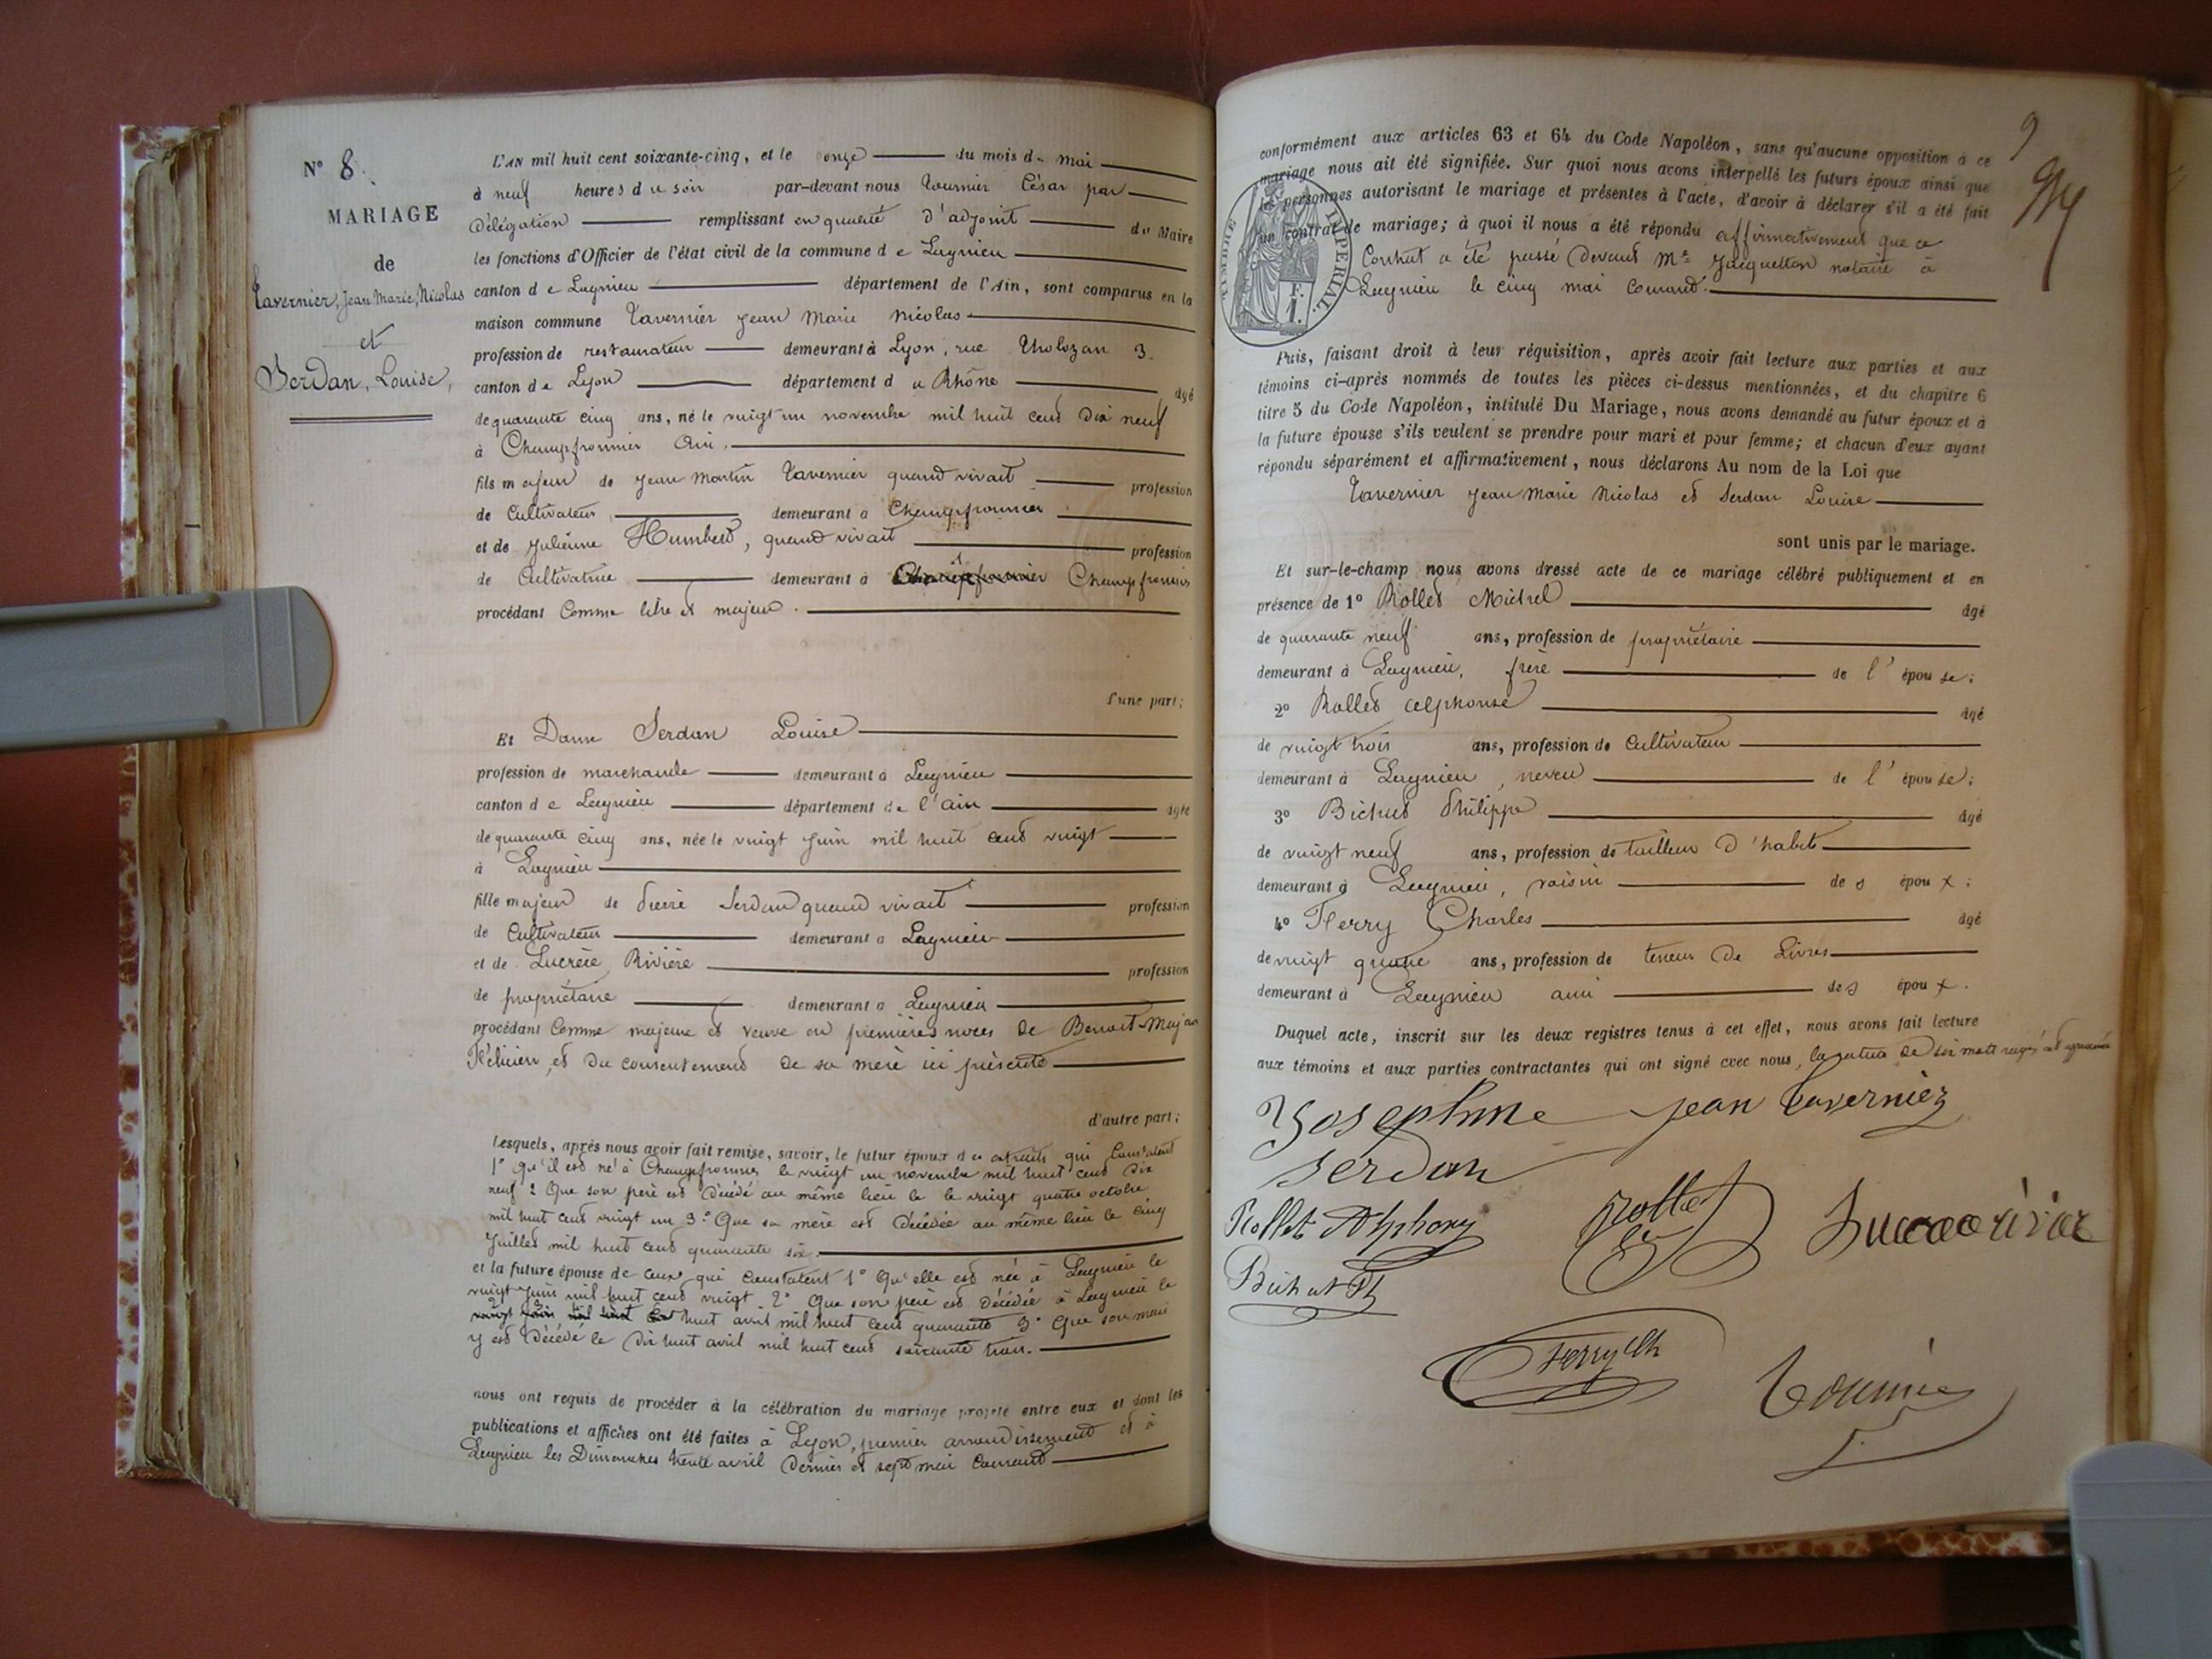 N° 8.
MARIAGE
de
Tavernier, Jean Marie, Nicolas
et
Serdan, Louise,
L'AN mil huit cent soixante-cinq, et le onze du mois de mai
à neuf heures du soir par-devant nous Tournier César par
délégation remplissant en qualité d'adjoint du Maire
les fonctions d'Officier de l'état civil de la commune de Lagnieu
canton de Lagnieu département de l'Ain, sont comparus en la
maison commune Tavernier Jean Marie Nicolas
profession de restaurateur demeurant à Lyon, rue Tholozan 3.
canton de Lyon département du Rhône âgé
de quarante cinq ans, né le vingt un novembre mil huit cent dix neuf
à Champfromier Ain.
fils majeur de Jean Martin Tavernier quand vivait profession
de Cultivateur demeurant à Champfromier
et de Julienne Humbert, quand vivait profession
de Cultivatrice demeurant à Champfromier Champfromier
procédant comme libre et majeur.
d'une part;
Et Dame Serdan Louise
profession de marchande demeurant à Lagnieu
canton de Lagnieu département de l'ain âgée
de quarante cinq ans, née le vingt juin mil huit cent vingt
à Lagnieu
fille majeur de Pierre Serdan quand vivait profession
de Cultivateur demeurant à Lagnieu
et de Lucrèce Rivière profession
de propriétaire demeurant à Lagnieu
procédant comme majeure et veuve en premières noces de Benoit-Marjan
Félicien, et du consentement de sa mère ici présente
d'autre part;
Lesquels, après nous avoir fait remise, savoir, le futur époux des extraits qui constatent
1° qu'il est né à Champfromier le vingt un novembre mil huit cent dix
neuf 2 Que son père est décédé au même lieu le le vingt quatre octobre
mil huit cent vingt un 3.° Que sa mère est décédée au même lieu le cinq
Juillet mil huit cent quarante six.
et la future épouse de ceux qui constatent 1° Qu'elle est née à Lagnieu le
vingt juin mil huit cent vingt 2° Que son père est décédée à Lagnieu le
vingt juin mil huit cent huit avril mil huit cent quarante 3° Que son mari
y est décédé le dix huit avril mil huit cent soixante trois.
nous ont requis de procéder à la célébration du mariage projeté entre eux et dont les
publications et affiches ont été faites à Lyon, premier arrondissement et à
Lagnieu les Dimanches trente avril dernier et sept mai courant
9
conformément aux articles 63 et 64 du Code Napoléon, sans qu'aucune opposition à ce
mariage nous ait été signifiée. Sur quoi nous avons interpellé les futurs époux ainsi que
les personnes autorisant le mariage et présentes à l'acte, d'avoir à déclarer s'il a été fait
un contrat de mariage; à quoi il nous a été répondu affirmativement que ce
Contrat a été passé devant Me Jacquetton notaire à
Lagnieu le cinq mai courant.
TIMBRE IMPÉRIAL.
F.
1.
Puis, faisant droit à leur réquisition, après avoir fait lecture aux parties et aux
témoins ci-après nommés de toutes les pièces ci-dessus mentionnées, et du chapitre 6
titre 5 du Code Napoléon, intitulé Du Mariage, nous avons demandé au futur époux et à
la future épouse s'ils veulent se prendre pour mari et pour femme; et chacun d'eux ayant
répondu séparément et affirmativement, nous déclarons Au nom de la Loi que
Tavernier Jean Marie Nicolas et Serdan Louise
sont unis par le mariage.
Et sur-le-champ nous avons dressé acte de ce mariage célébré publiquement et en
présence de 1° Rollet Michel âgé
de quarante neuf ans, profession de propriétaire
demeurant à Lagnieu, frère de l'épouse;
2° Rollet Alphonse âgé
de vingt trois ans, profession de Cultivateur
demeurant à Lagnieu, neveu de l'épouse;
3° Bichat Philippe âgé
de vingt neuf ans, profession de tailleur d'habits
demeurant à Lagnieu, voisin des époux;
4° Ferry Charles âgé
de vingt quatre ans, profession de teneur de Livres
demeurant à Lagnieu ami des époux.
Duquel acte, inscrit sur les deux registres tenus à cet effet, nous avons fait lecture
aux témoins et aux parties contractantes qui ont signé avec nous, la rature de six mots rayés est approuvée
Josephine Jean Tavernier
serdan
Rollet Alphonse Rollet
Bichat Ph
Ferry Ch
Tournier